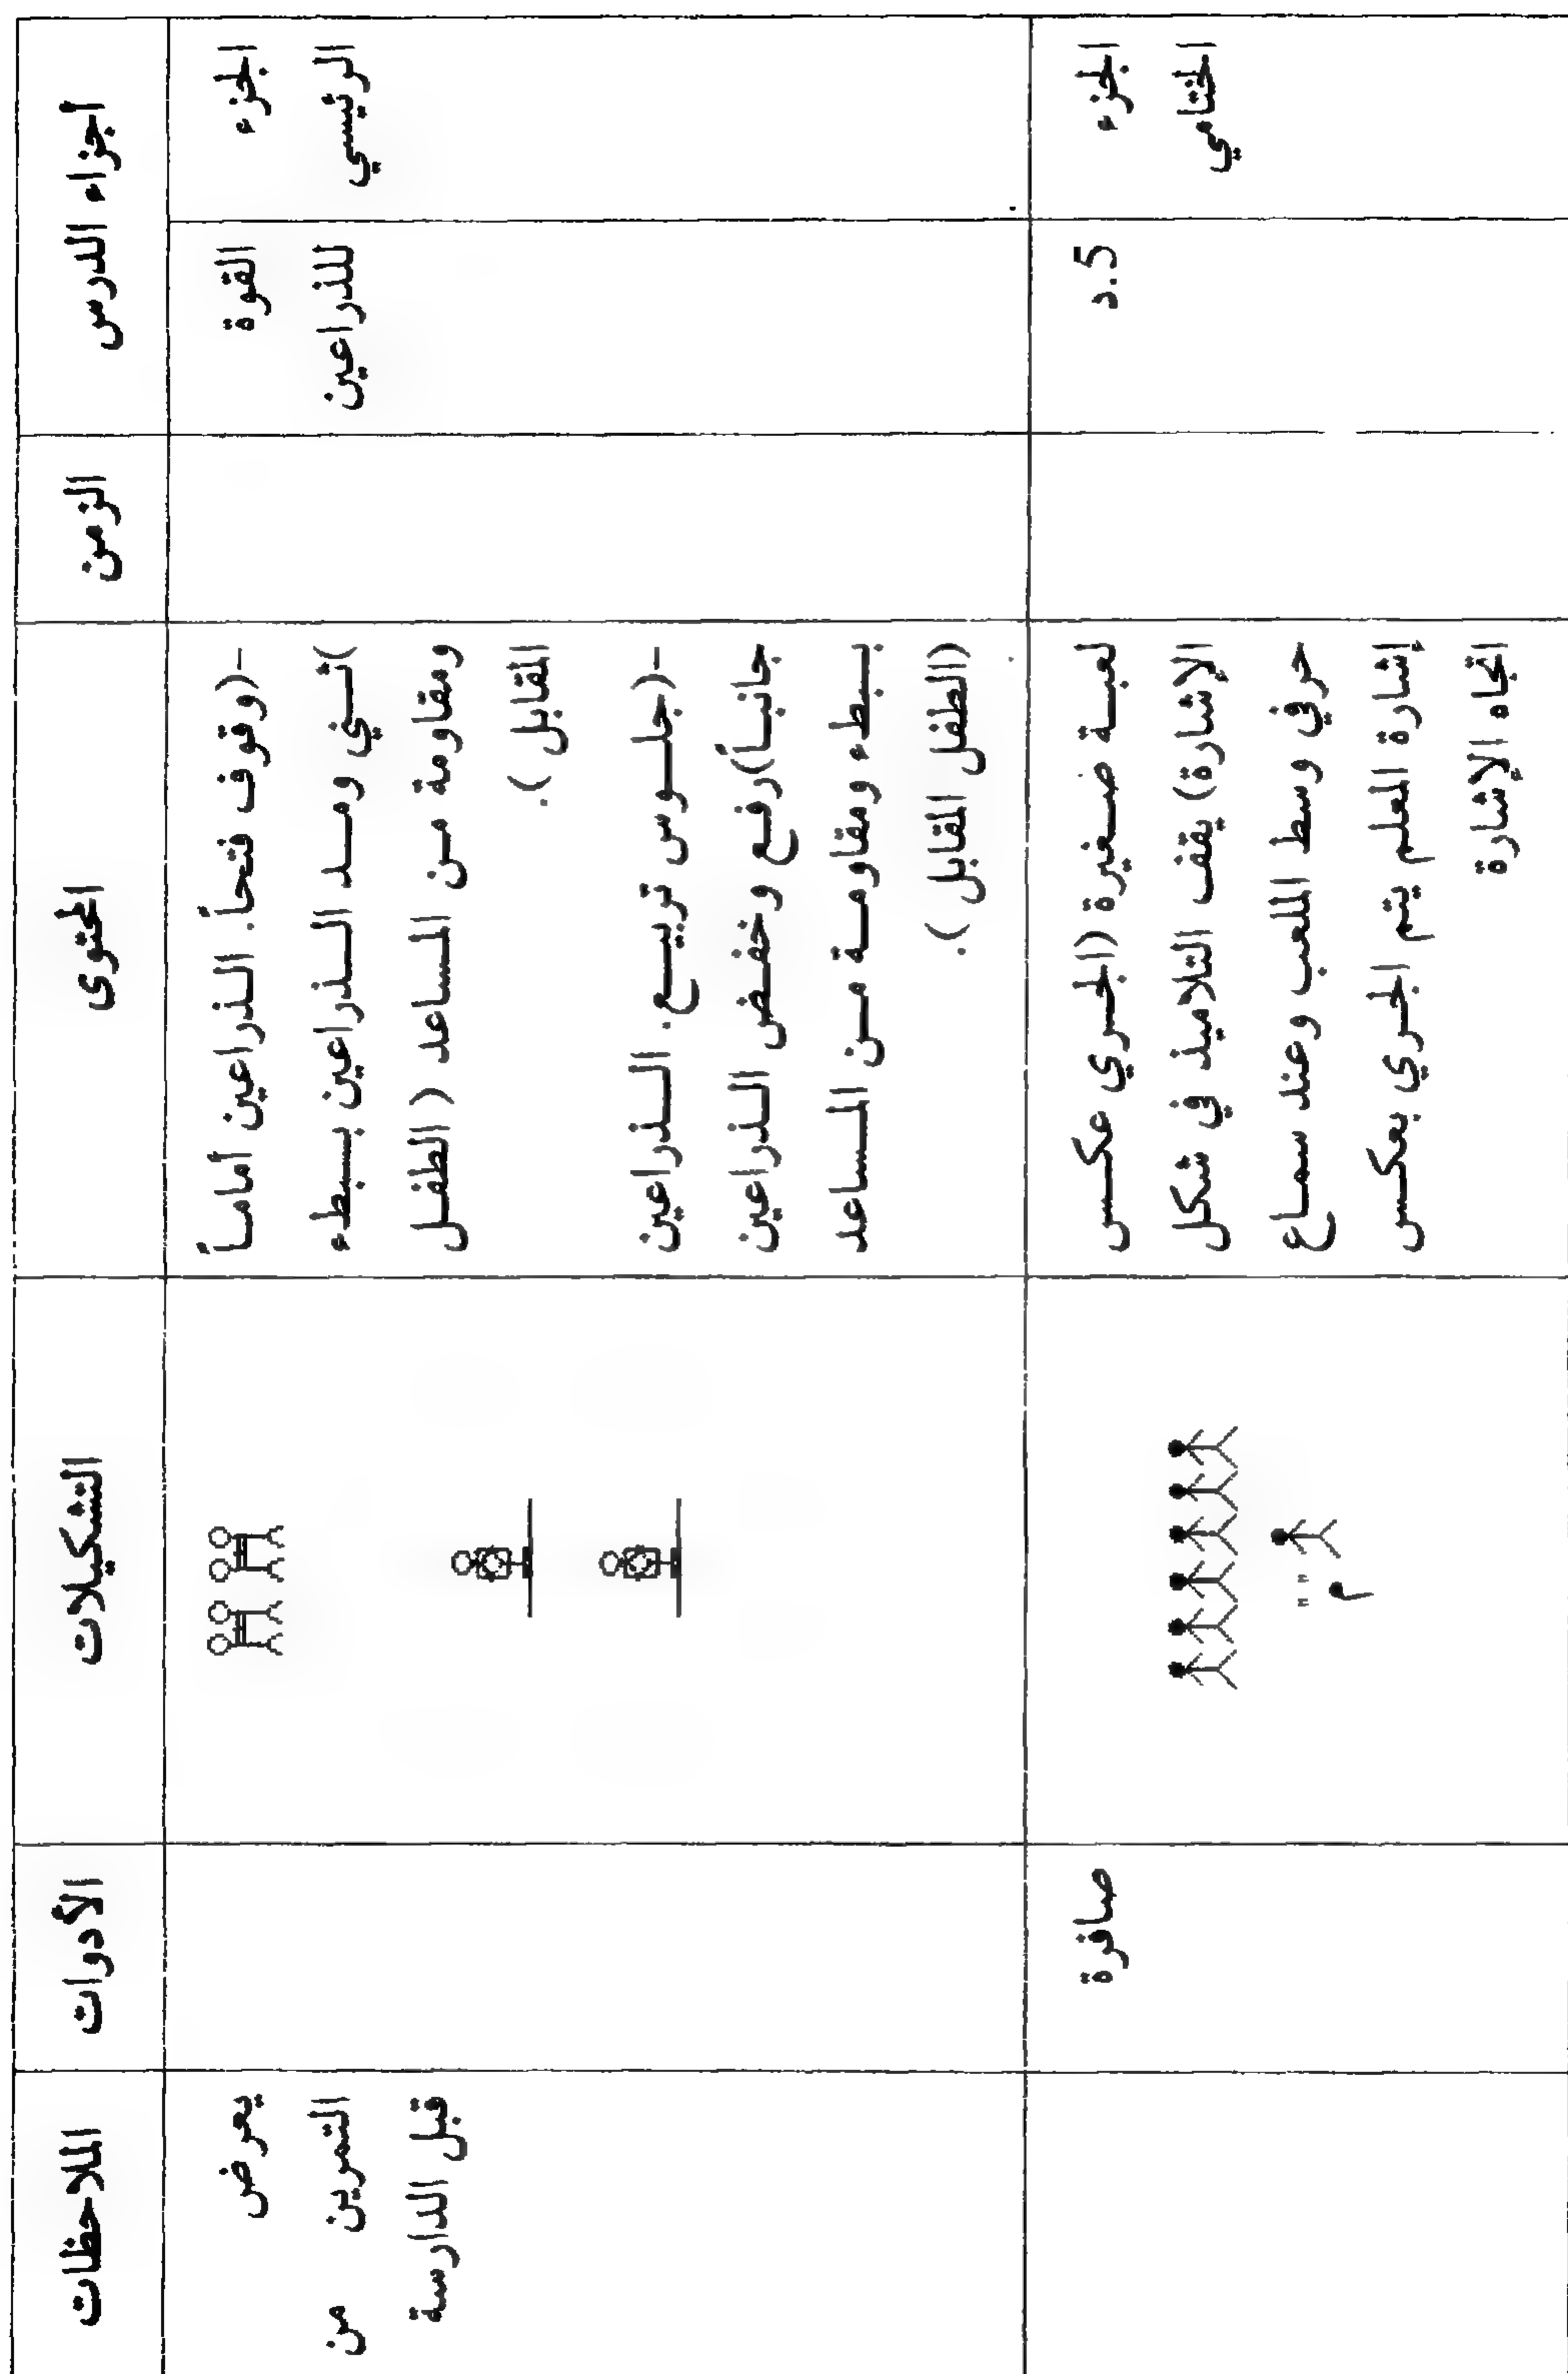 أجزاء الدرس
الزمن
المحتوى
التشكيلات
الأدوات
الملاحظات
الجزء
الرئيسي
القوة
للذراعين
-(وقوف فتحاً. الذراعين أماماً
)ثني ومد الذراعين ببطء
ومقاومة من المساعد ( الطفل
المقابل ).
-(جلوس تربيع. الذراعين
جانباً)رفع وخفض الذراعين
ببطء ومقاومة من المساعد
(الطفل المقابل ).
يعرض
التمرين من
قبل الدارسة
الجزء
الختامي
5.د
لعبة صغيرة (الجري عكس
الإشارة) يقف التلاميذ في شكل
حر في وسط الملعب وعند سماع
إشارة المعلم يتم الجري بعكس
اتجاه الإشارة
" "
م
صافرة